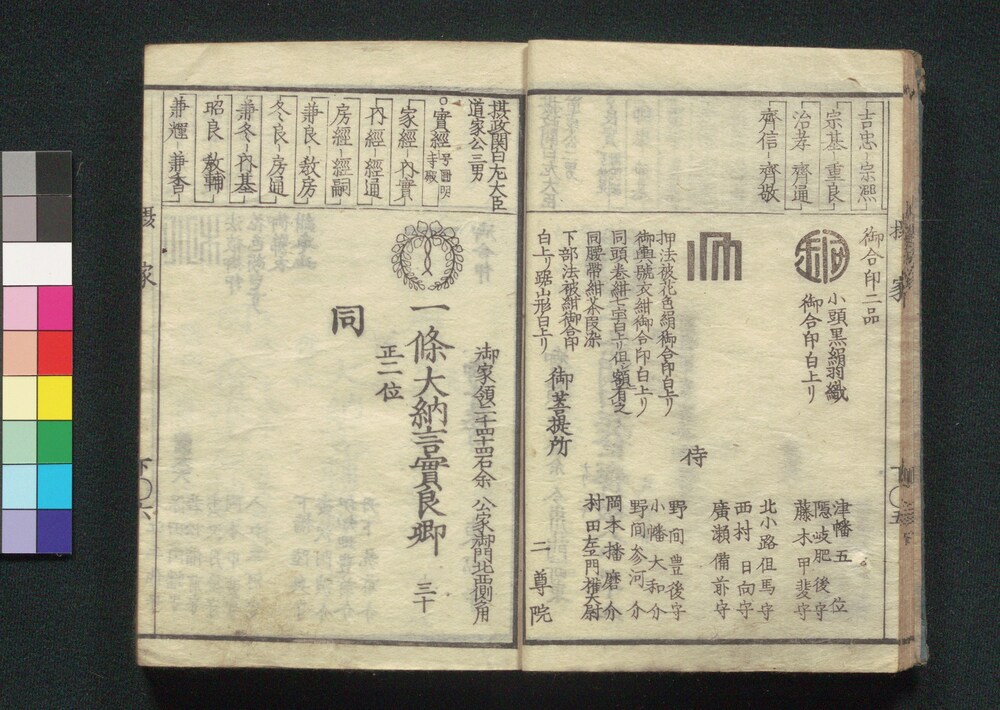 吉忠 宗熈
宗基 重良
治孝 齊通
齊信 齊敬
御合印二品
小頭黒絹羽織
御合印白上り
押法被花色絹御合印白上り
御輿號衣紺御合印白上り
同頭巻紺七宝白上リ但シ額有之
同腰帶紺茶段染
下部法被紺御合印
白上リ踞山形白上リ
御菩提所
二尊院
侍
津幡五位
隠岐肥後守
藤木甲斐守
北小路但馬守
西村日向守
廣瀬備前守
野間豊後守
小幡大和介
野間参河介
岡本播磨介
村田左門権大尉
摂家
下〇五
摂政関白左大臣
道家公三男
實經
家經 内實
内經 經通
房經 經嗣
兼良 教房
冬良 房通
兼冬 内基
昭良 教輔
兼輝 兼香
御家領二千四十四石余
公家御門北西側角
一條大納言實良卿
三十
正二位
同
摂家
下〇六